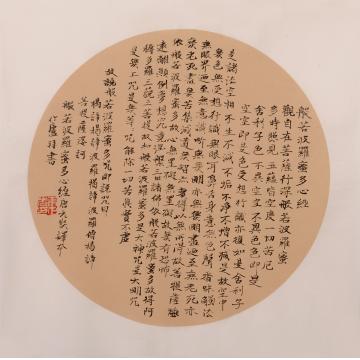 般若波羅蜜多心經
觀自在菩薩行深般若波羅蜜
多時照見五蘊皆空度一切苦厄
舍利子色不異空空不異色色即是
空空即是色受想行識亦復如是舍利子
是諸法空相不生不滅不垢不淨不增不減是故空中
無色無受想行識無眼耳鼻舌身意無色聲香味觸法
無眼界乃至無意識界無無明亦無無明盡乃至無老死亦
無老死盡無苦集滅道無智亦無得以無所得故菩提薩埵
依般若波羅蜜多故心無罣礙無罣礙故無有恐怖
遠離顛倒夢想究竟涅槃三世諸佛依般若波羅蜜多故得阿
耨多羅三藐三菩提故知般若波羅蜜多是大神咒是大明咒
是無上咒是無等等咒能除一切苦真實不虛
故說般若波羅蜜多咒即說咒曰
揭諦揭諦波羅揭諦波羅僧揭諦
菩提薩婆訶
般若波羅蜜多心經唐玄奘譯本